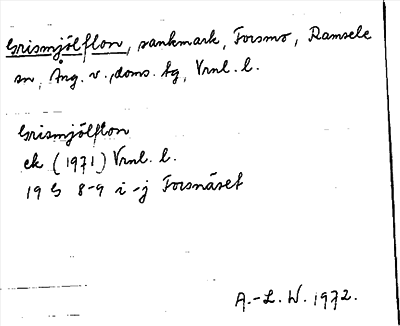 Grismjölflon, sankmark, Forsmo, Ramsele
sn, Ång. v., doms. tg, Vrnl. l.
Grismjölflon
ek (1971) Vrnl. l.
19 G 8-9 i-j Forsnäset
A.-L. W. 1972.